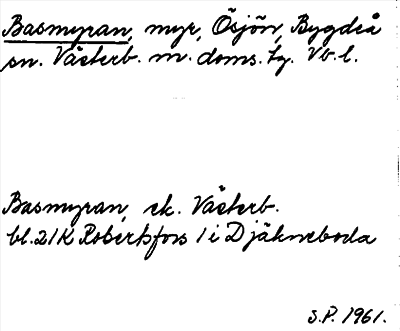 Basmyran, myr, Ösjön, Bygdeå
sn. Västerb. m. doms. tg. Vb. l.
Basmyran, ek. Västerb.
bl. 21K Robertsfors 1 i Djäkneboda
S.P. 1961.